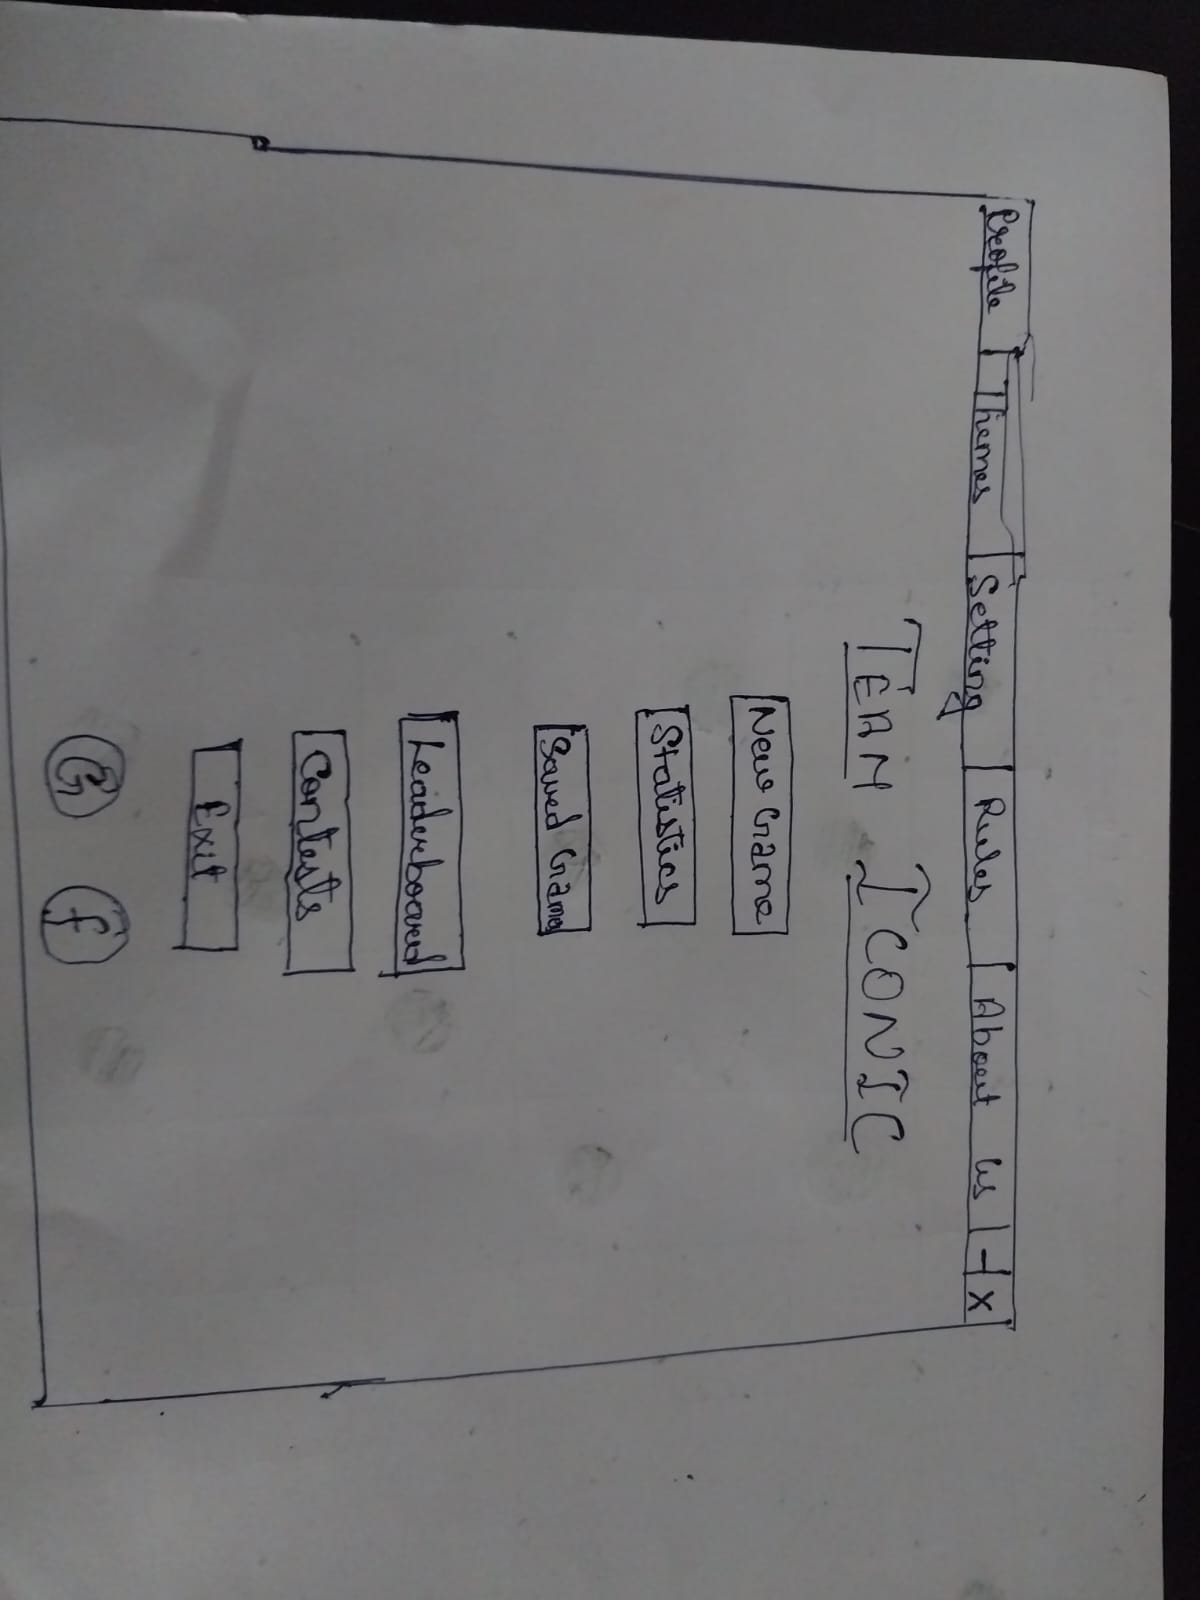 Profile | Themes | Setting | Rules | About us | - | x
TEAM ICONIC
New Game
Statistics
Saved Game
Leaderboard
Contests
Exit
G f